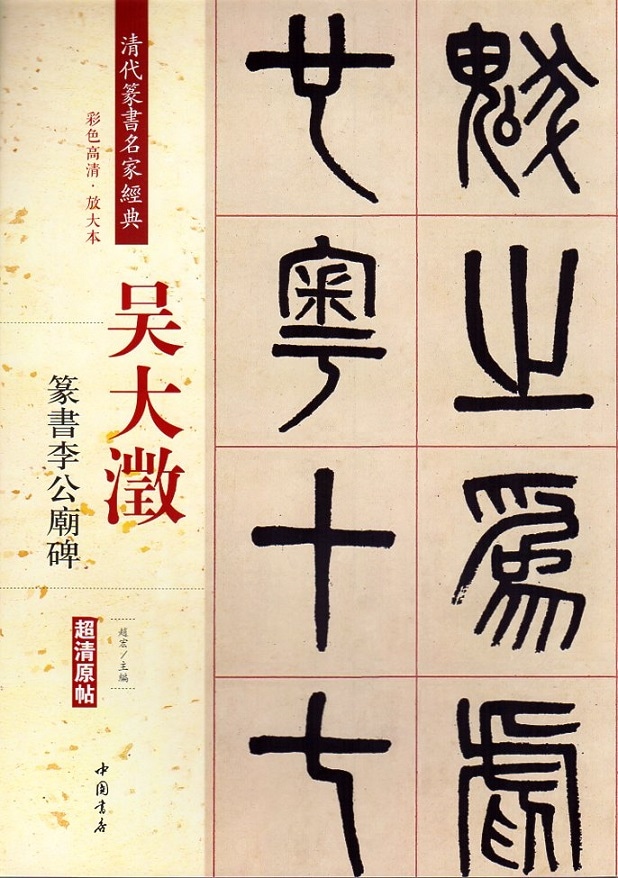 魃之為虐
也粵十七
清代篆書名家經典
彩色高清·放大本
吴大澂
篆書李公廟碑
超清原帖
趙宏／主編
中国書店